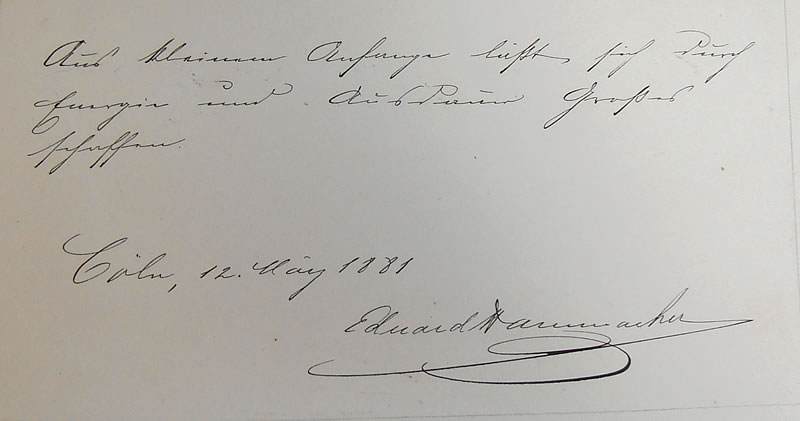 Aus kleinem Anfange läßt sich durch
Energie und Ausdauer Großes
schaffen.
Cöln, 12. März 1881
Eduard Hammacher